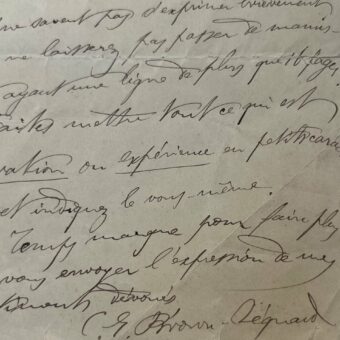 ne savent pas s'exprimer brièvement
ne laisserez pas passer de manus-
ayant une ligne de plus que 16 pages.
faites mettre tout ce qui est
vation ou expérience en petit cara
et indiquez le vous-même.
Temps manque pour faire plus
vous envoyer l'expression de mes
timents dévoués
C. E. Brown-Séquard